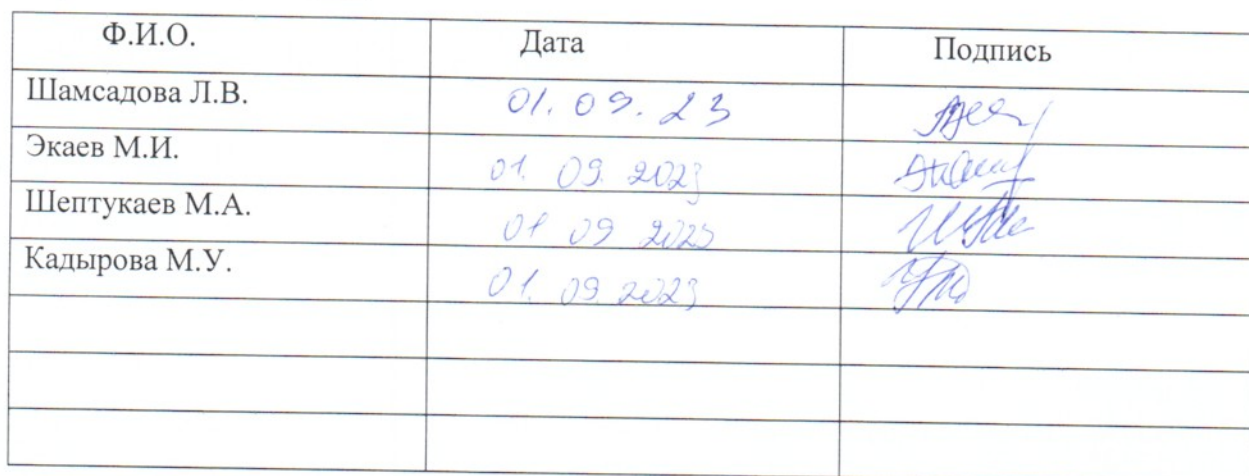 Ф.И.О. Дата Подпись
Шамсадова Л.В. 01.09.23
Экаев М.И. 01.09.2023
Шептукаев М.А. 01 09 2023
Кадырова М.У. 01.09 2023